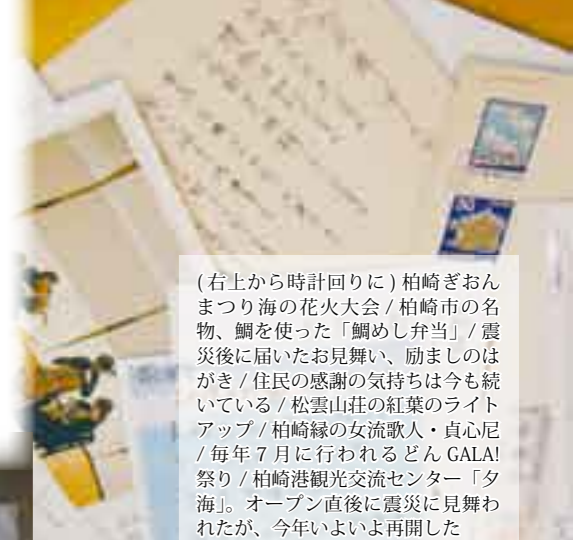 (右上から時計回りに) 柏崎ぎおん
まつり海の花火大会 / 柏崎市の名
物、鯛を使った「鯛めし弁当」/ 震
災後に届いたお見舞い、励ましのは
がき / 住民の感謝の気持ちは今も続
いている / 松雲山荘の紅葉のライト
アップ / 柏崎縁の女流歌人・貞心尼
/ 毎年７月に行われるどん GALA!
祭り / 柏崎港観光交流センター「夕
海」。オープン直後に震災に見舞わ
れたが、今年いよいよ再開した